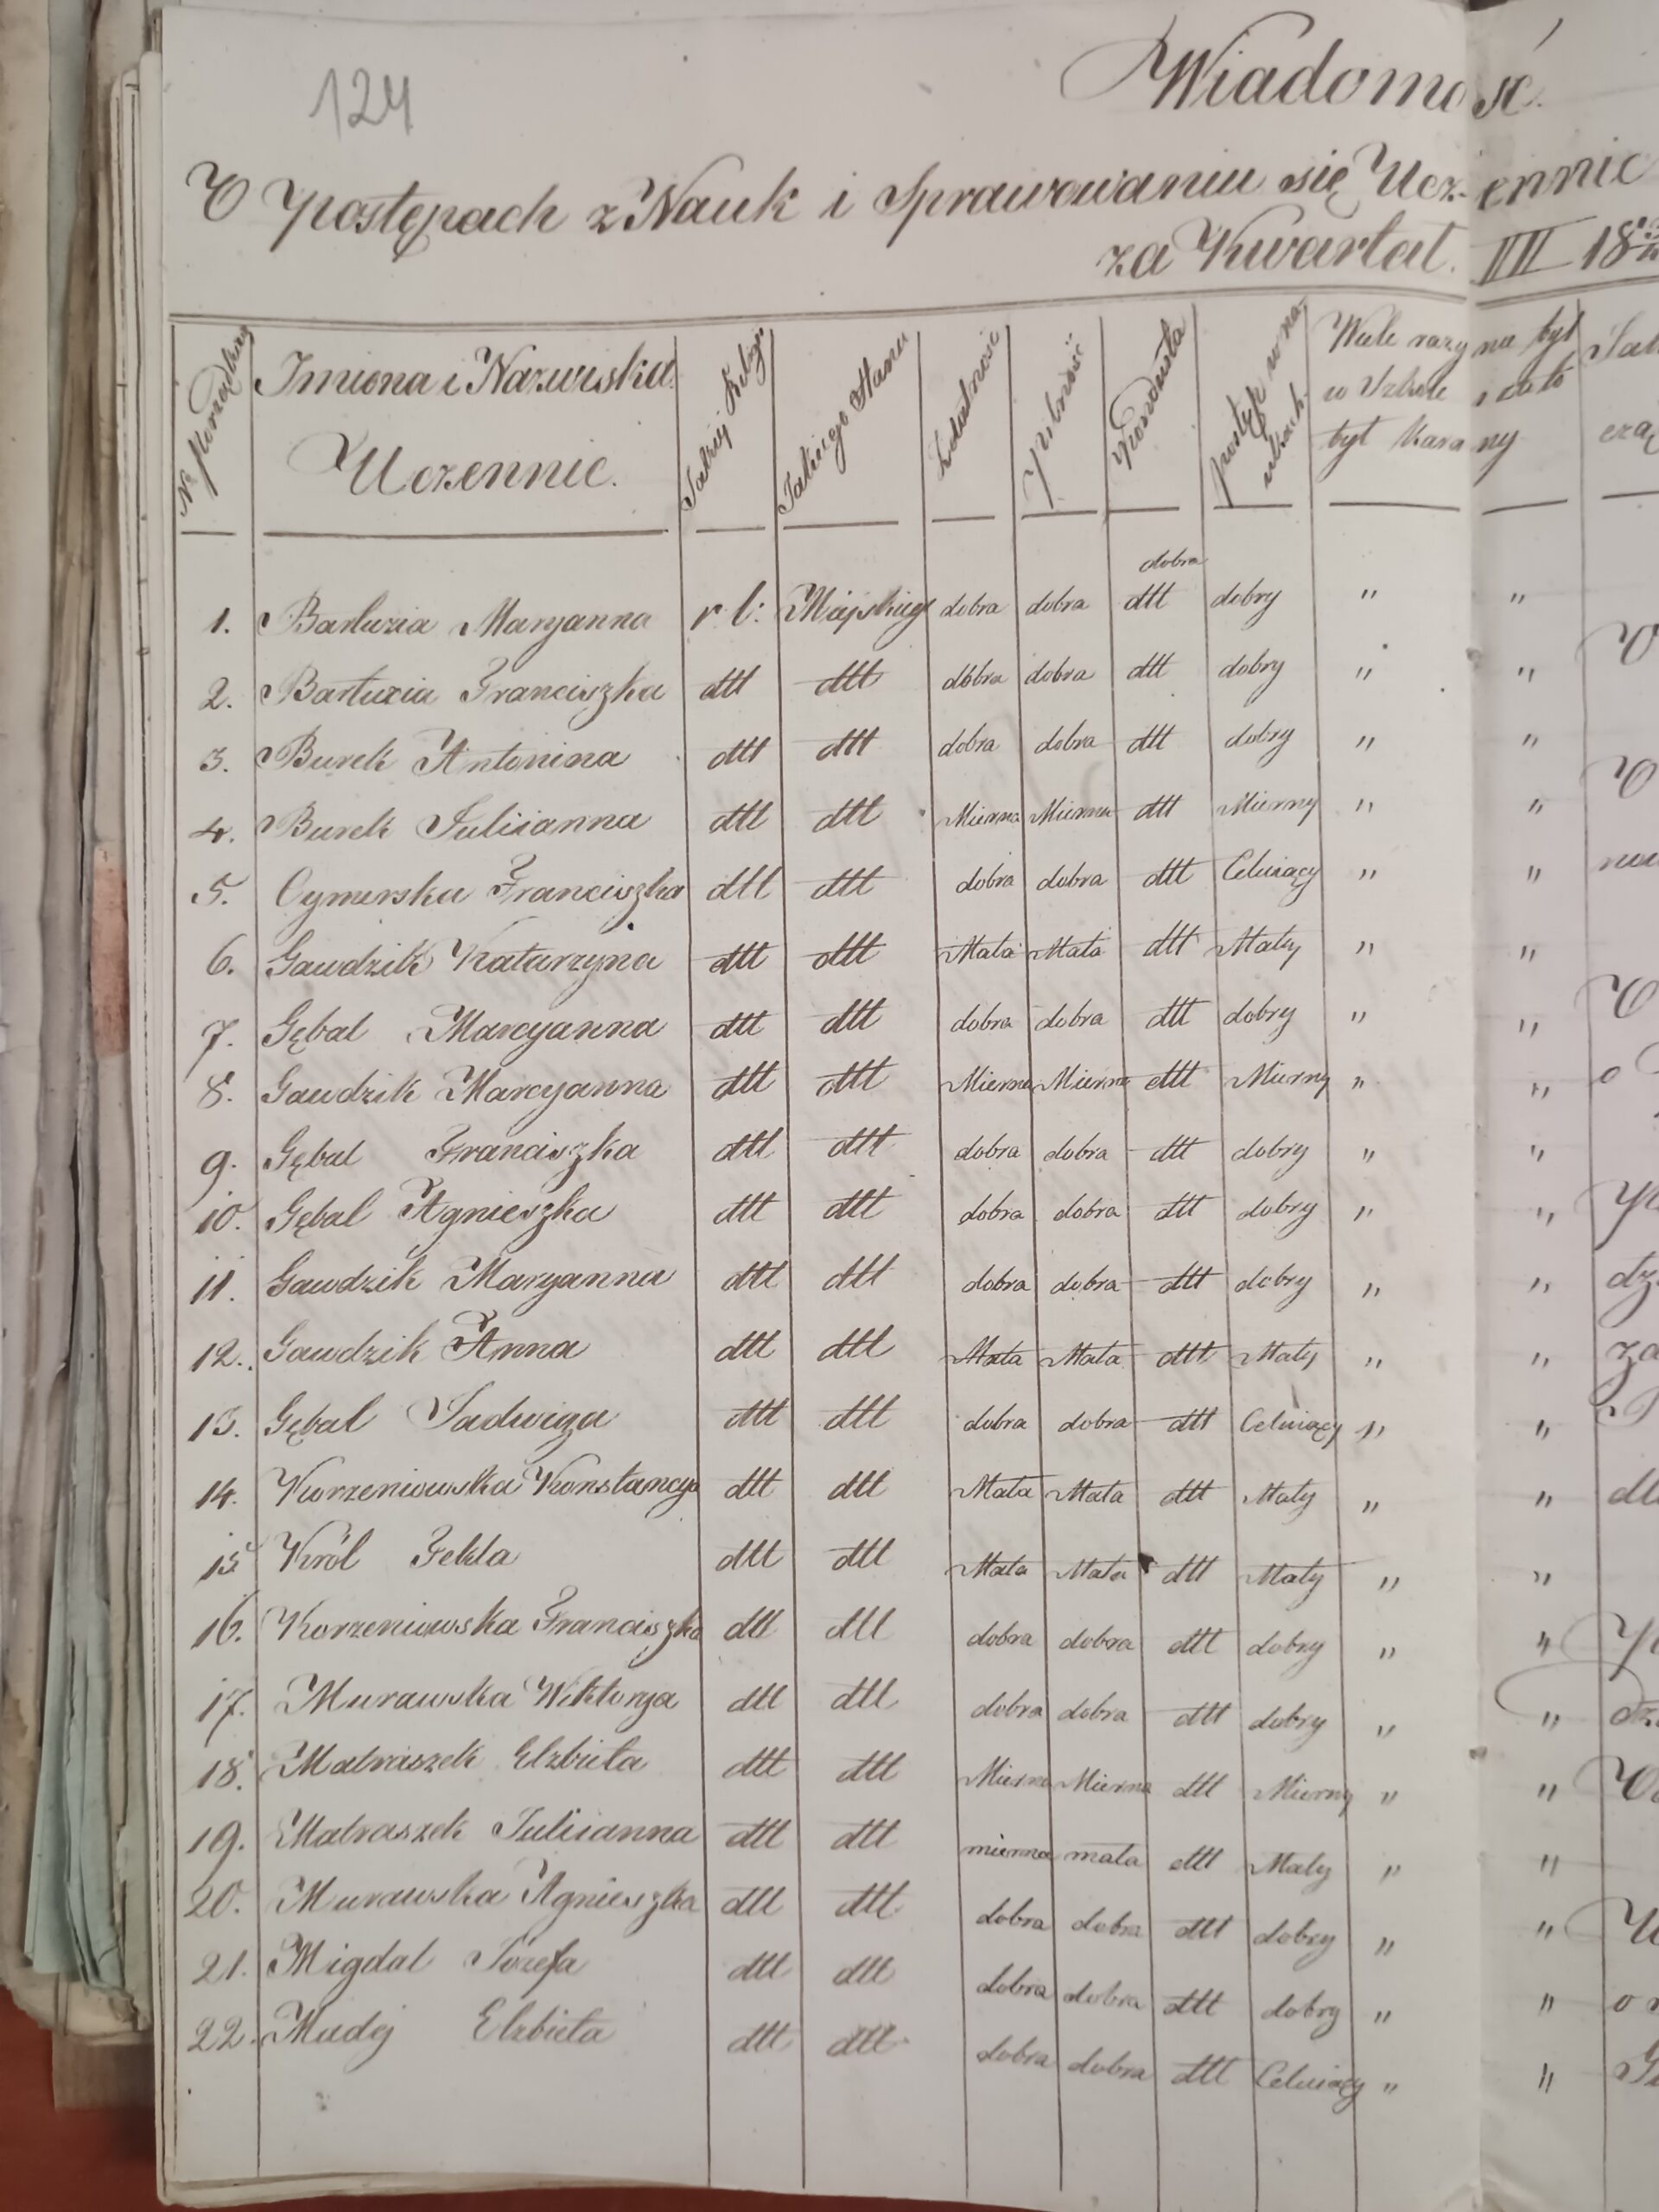 124
Wiadomość.
O Postępach z Nauk i Sprawowaniu się Uczennic
za Kwartał. III 18
Nr Porządkowy
Imiona i Nazwiska
Uczennic.
Jakiej Religii
Jakiego Stanu
Zdatność
Pilność
postęp w na
ukach
Wiele razy na
w Szkole
był karany
dobra
1. Bartuzia Maryanna r. l: Miejskiego dobra dobra dtt dobry " "
2. Bartuzia Franciszka dtt dtt dobra dobra dtt dobry " "
3. Burek Antonina dtt dtt dobra dobra dtt dobry " "
4. Burek Juliianna dtt dtt Mierna Mierna dtt Mierny " "
5. Cymerska Franciszka dtt dtt dobra dobra dtt Celuiący " "
6. Gawdzik Katarzyna dtt dtt Mała Mała dtt Mały " "
7. Gębal Marcyanna dtt dtt dobra dobra dtt dobry " "
8. Gawdzik Marcyanna dtt dtt Mierna Mierna dtt Mierny " "
9. Gębal Franciszka dtt dtt dobra dobra dtt dobry " "
10. Gębal Agnieszka dtt dtt dobra dobra dtt dobry " "
11. Gawdzik Maryanna dtt dtt dobra dobra dtt dobry " "
12. Gawdzik Anna dtt dtt Mała Mała dtt Mały " "
13. Gębal Jadwiga dtt dtt dobra dobra dtt Celuiący " "
14. Korzeniowska Konstancya dtt dtt Mała Mała dtt Mały " "
15 Król Tekla dtt dtt Mała Mała dtt Mały " "
16. Korzeniowska Franciszka dtt dtt dobra dobra dtt dobry " "
17. Murawska Wiktorya dtt dtt dobra dobra dtt dobry " "
18. Matraszek Elżbieta dtt dtt Mierna Mierna dtt Mierny " "
19. Matraszek Juliianna dtt dtt mierna mała dtt Mały " "
20. Murawska Agnieszka dtt dtt dobra dobra dtt dobry " "
21. Migdal Józefa dtt dtt dobra dobra dtt dobry " "
22. Madej Elzbieta dtt dtt dobra dobra dtt Celuiący " "